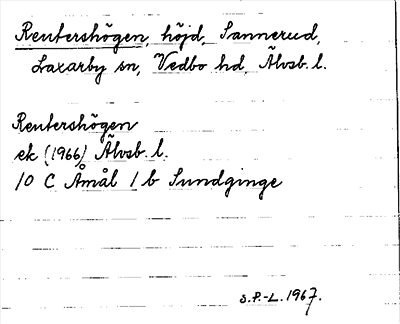 Rentershögen, höjd, Sannerud,
Laxarby sn, Vedbo hd, Älvsb. l.
Rentershögen
ek (1966) Älvsb. l.
10 C Åmål 1 b Sundginge
S.P.-L. 1967.